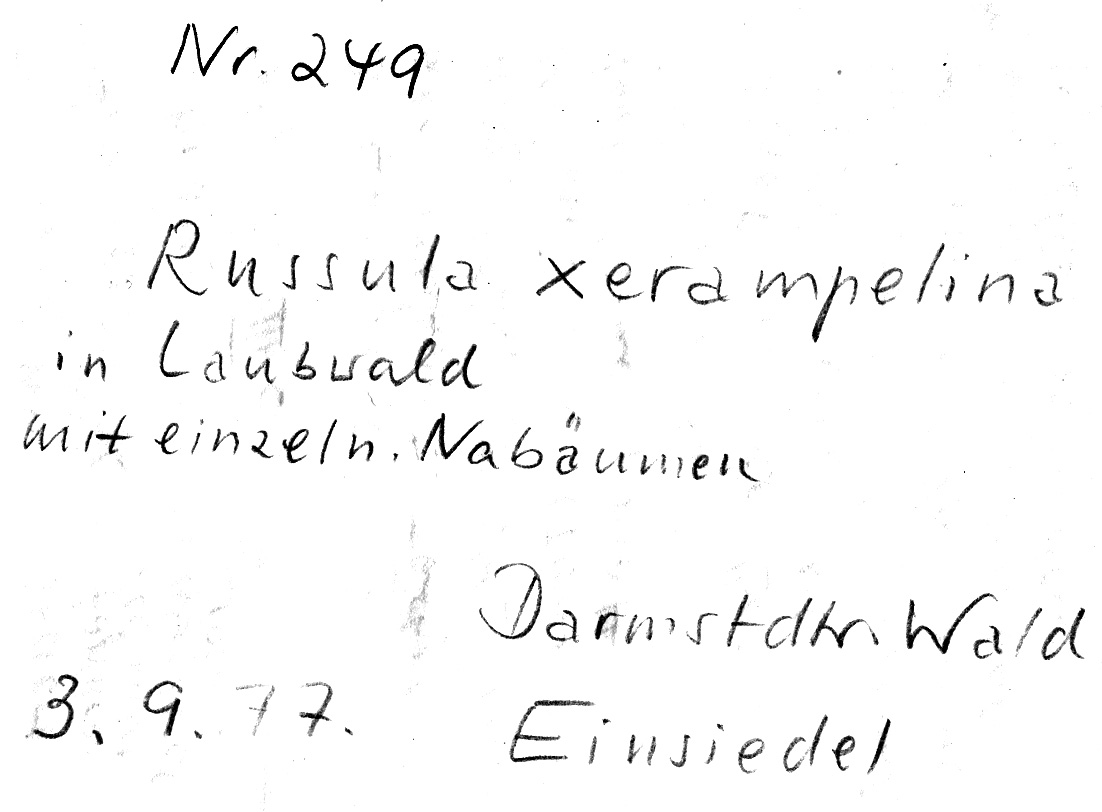 Nr. 249
Russula xerampelina
in Laubwald
mit einzeln. Nabäumen
Darmstdtr Wald
3. 9. 77. Einsiedel